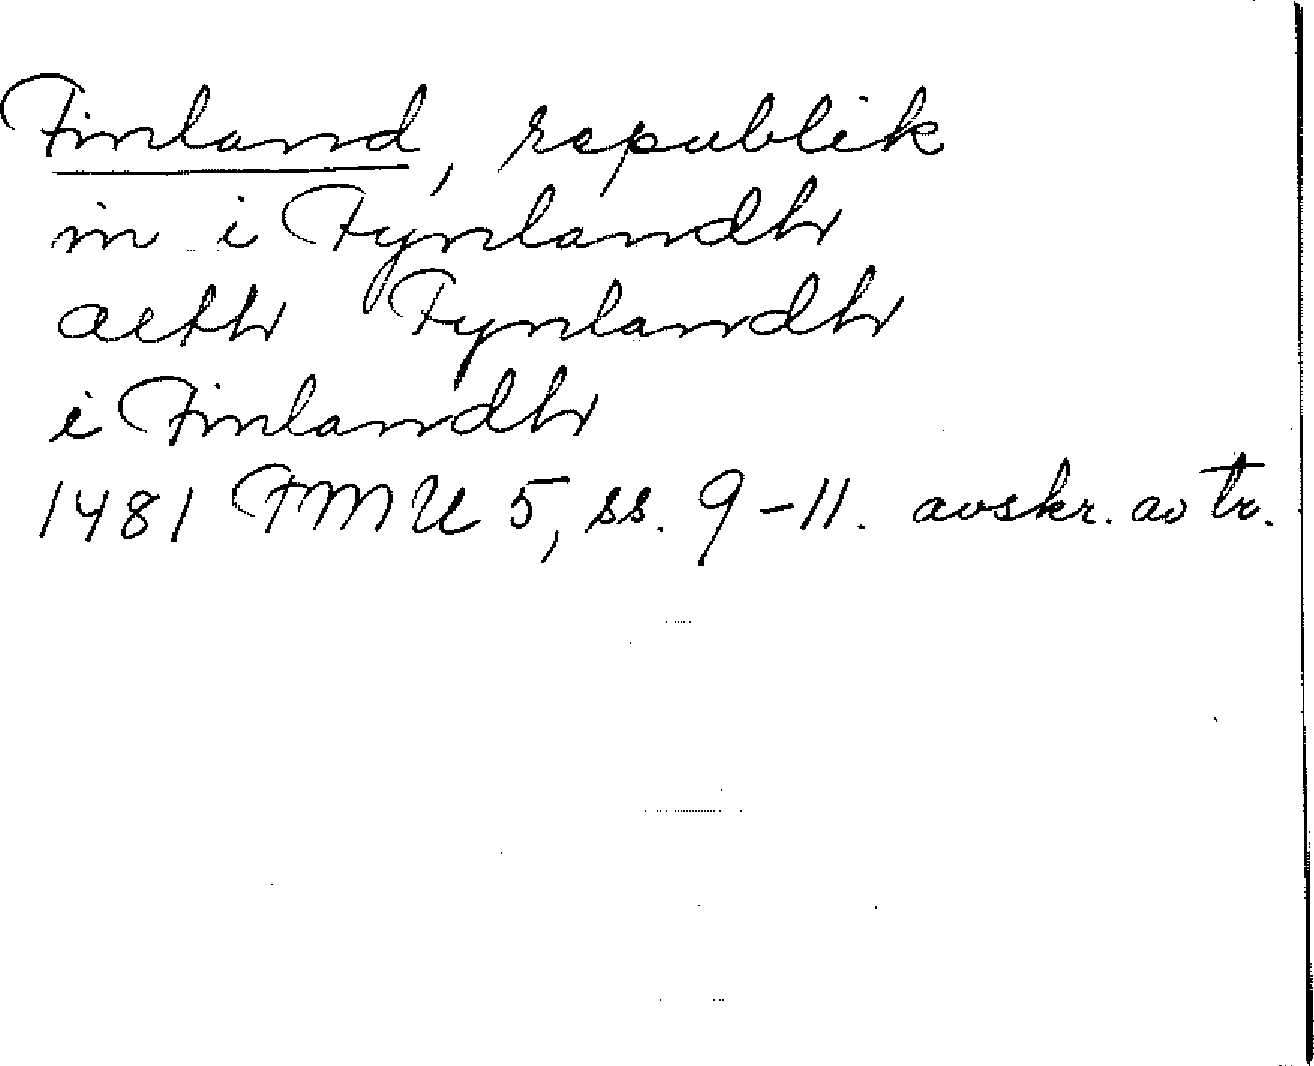 Finland, republik
in i Fynlandh
aeth Fynlandh
i Finlandh
1481 FMU 5, ss. 9-11. avskr. av tr.